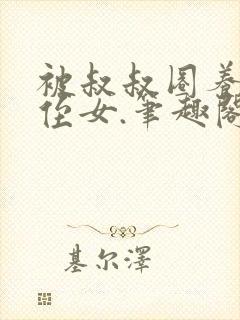 被叔叔圈养
侄女.笔趣阁
基尔泽